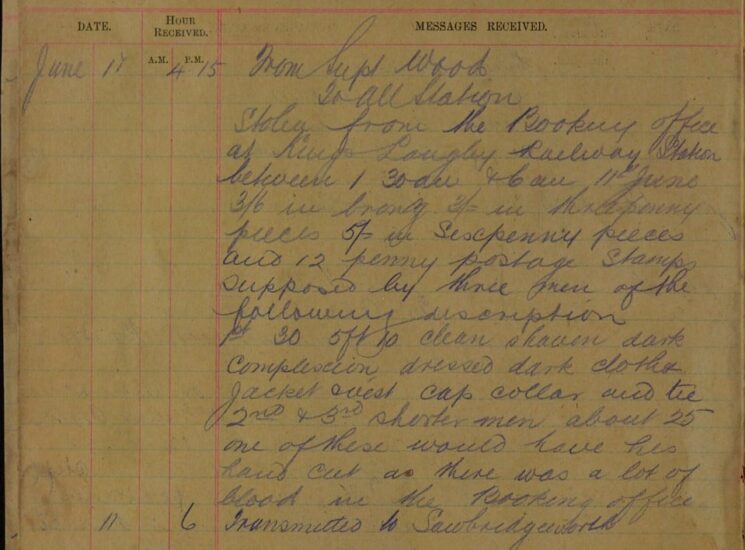 DATE. HOUR RECEIVED. MESSAGES RECEIVED.
A.M. P.M.
June 17 4 15 From Supt Wood
To all Station
Stolen from the Booking office
at Kings Langley Railway Station
between 1 30 am & 6 am 11th June
3/6 in bronze 3/= in threepenny
pieces 5/= in Sixpenny pieces
and 12 penny postage Stamps
supposed by three men of the
following discription
1st 30 5ft 10 clean shaven dark
complexion dressed dark cloths
Jacket & vest cap collar and tie
2nd & 3rd shorter men about 25
one of these would have his
hand cut as there was a lot of
blood in the Booking office
11 6 Transmitted to Sawbridgeworth